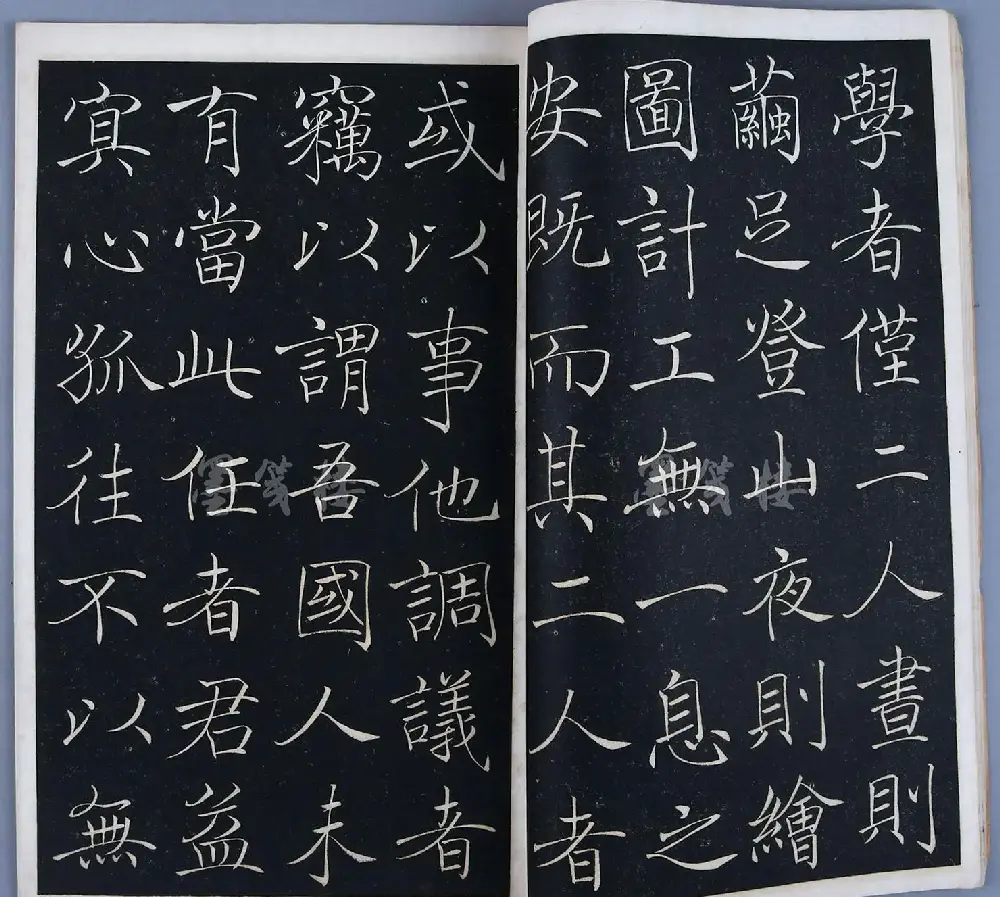 學者僅二人晝則
繭足登山夜則繪
圖計工無一息之
安既而其二人者
或以事他調議者
竊以謂吾國人未
有當此任者君益
寘心孤往不以無
墨箋樓
墨箋樓